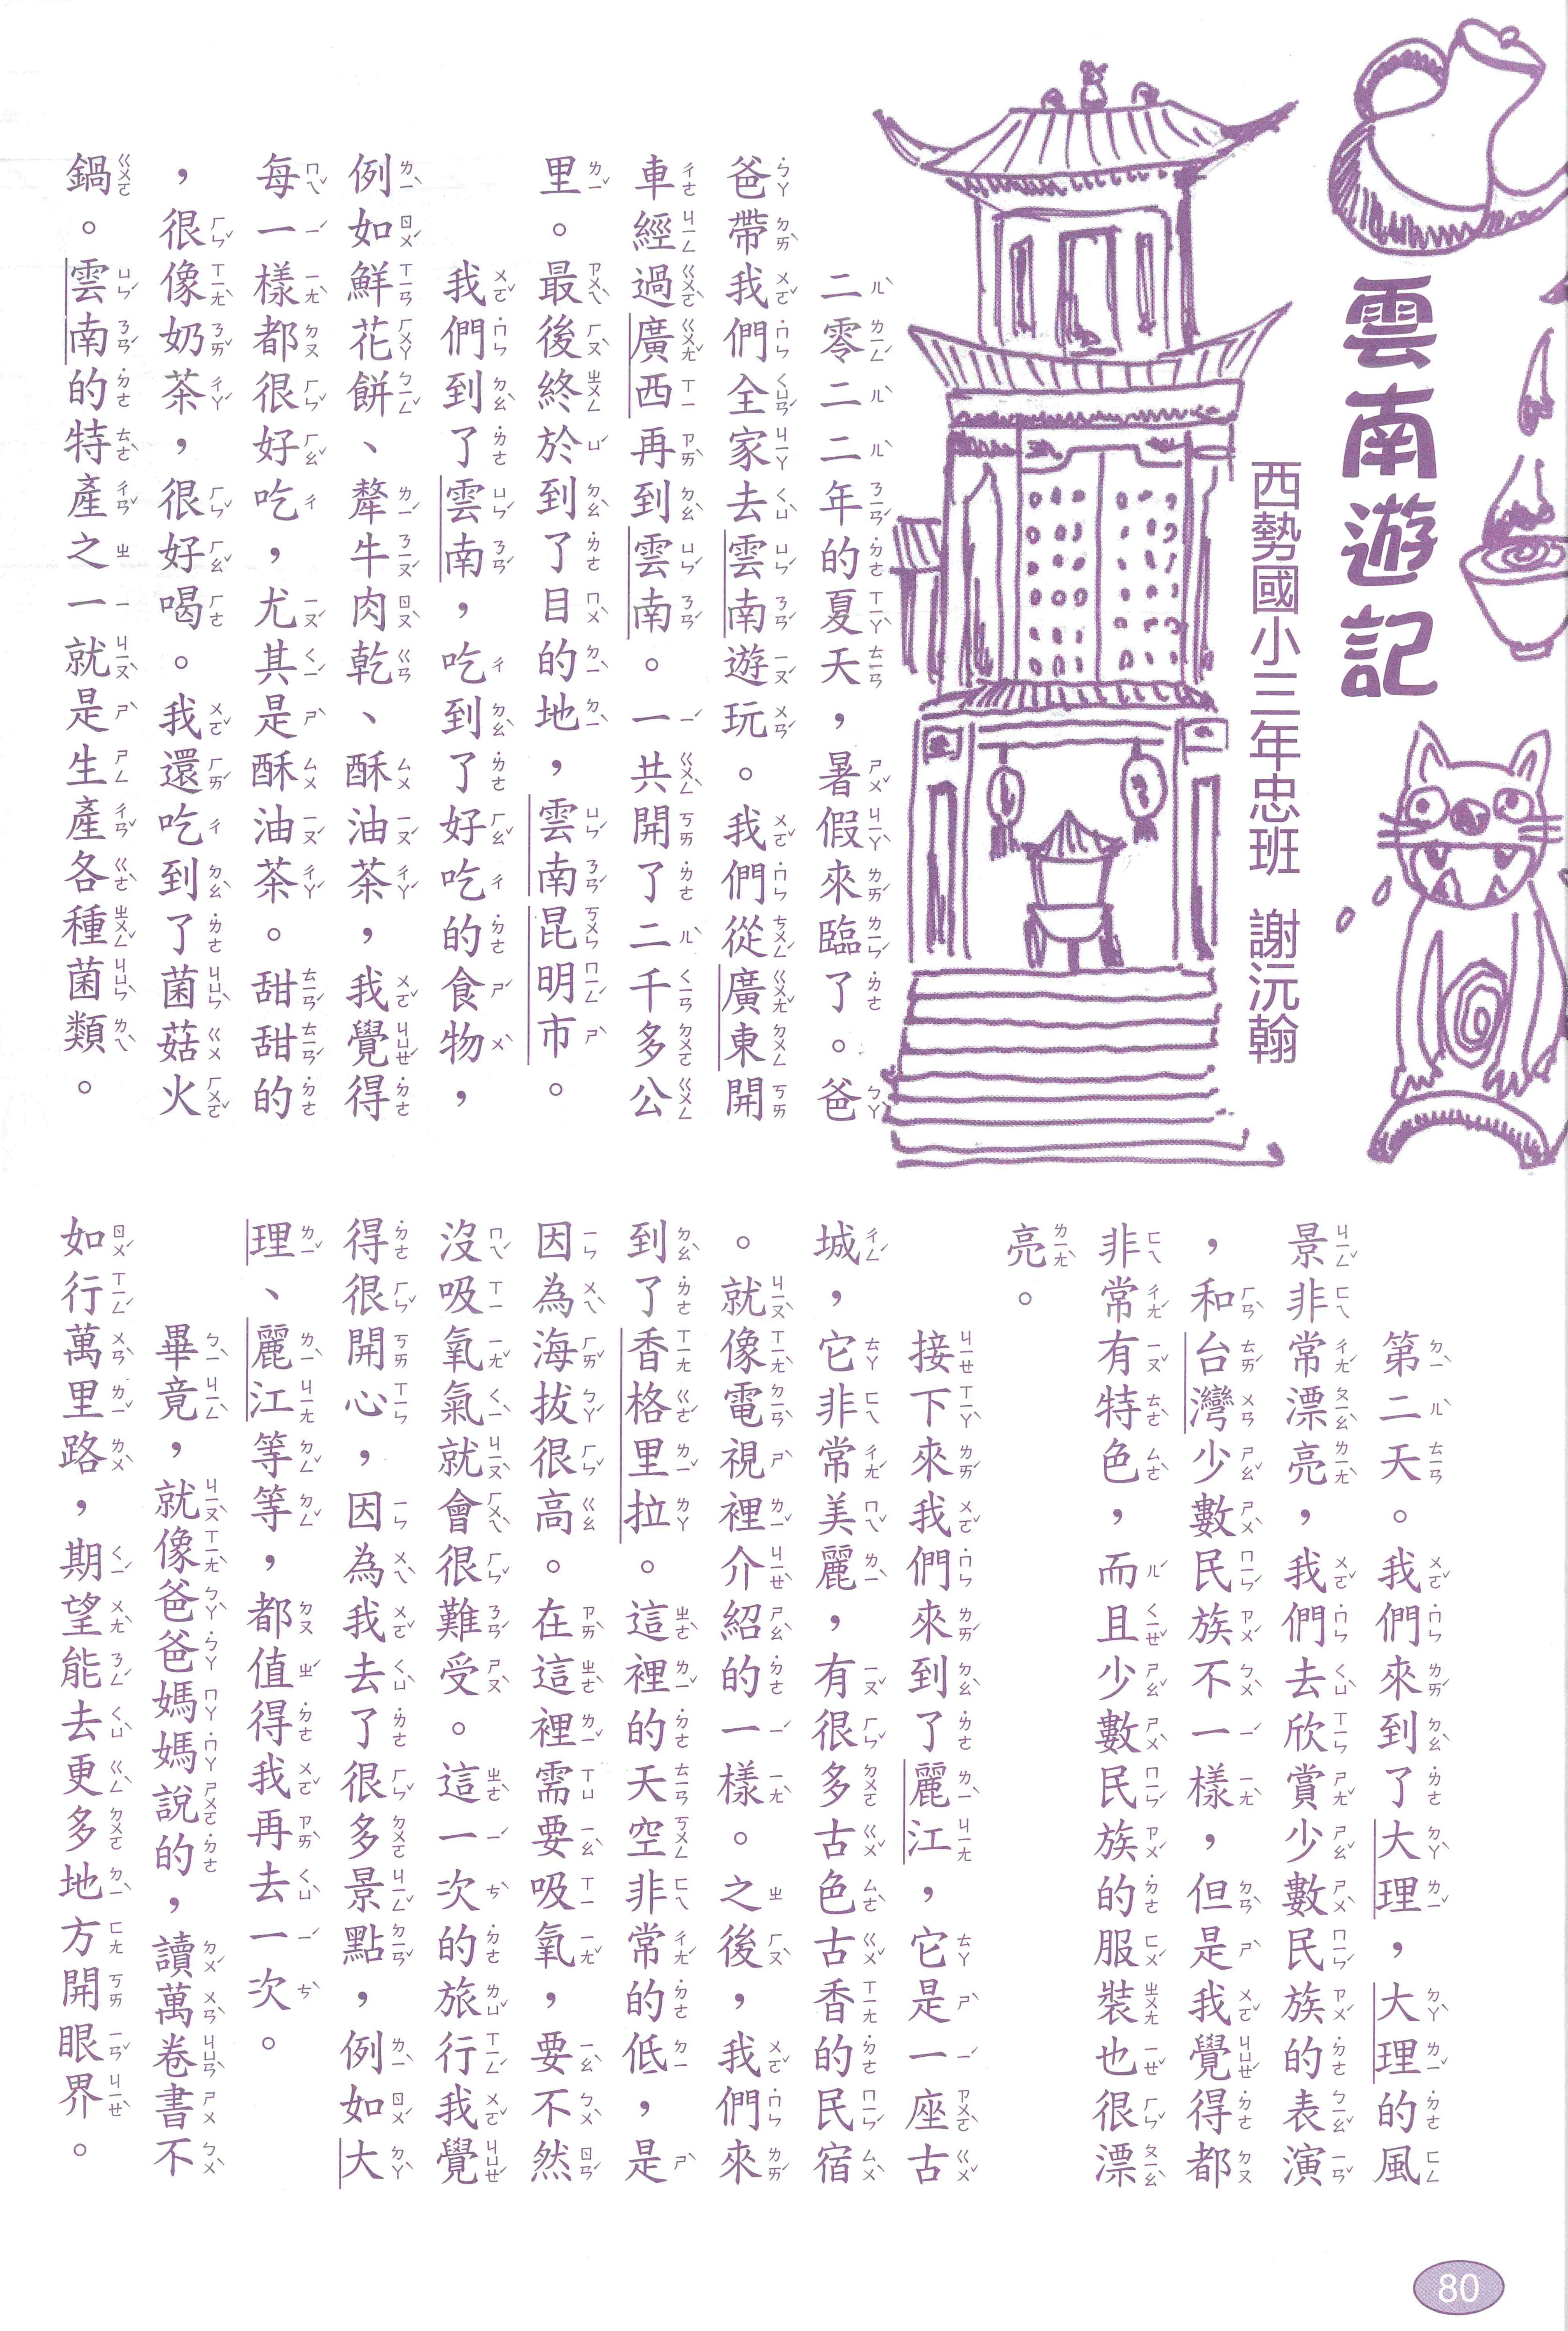 雲南遊記
西勢國小三年忠班 謝沅翰
二零二二年的夏天，暑假來臨了。爸
爸帶我們全家去雲南遊玩。我們從廣東開
車經過廣西再到雲南。一共開了二千多公
里。最後終於到了目的地，雲南昆明市。
我們到了雲南，吃到了好吃的食物，
例如鮮花餅、犛牛肉乾、酥油茶，我覺得
每一樣都很好吃，尤其是酥油茶。甜甜的
，很像奶茶，很好喝。我還吃到了菌菇火
鍋。雲南的特產之一就是生產各種菌類。
第二天。我們來到了大理，大理的風
景非常漂亮，我們去欣賞少數民族的表演
，和台灣少數民族不一樣，但是我覺得都
非常有特色，而且少數民族的服裝也很漂
亮。
接下來我們來到了麗江，它是一座古
城，它非常美麗，有很多古色古香的民宿
。就像電視裡介紹的一樣。之後，我們來
到了香格里拉。這裡的天空非常的低，是
因為海拔很高。在這裡需要吸氧，要不然
沒吸氧氣就會很難受。這一次的旅行我覺
得很開心，因為我去了很多景點，例如大
理、麗江等等，都值得我再去一次。
畢竟，就像爸爸媽媽說的，讀萬卷書不
如行萬里路，期望能去更多地方開眼界。
80